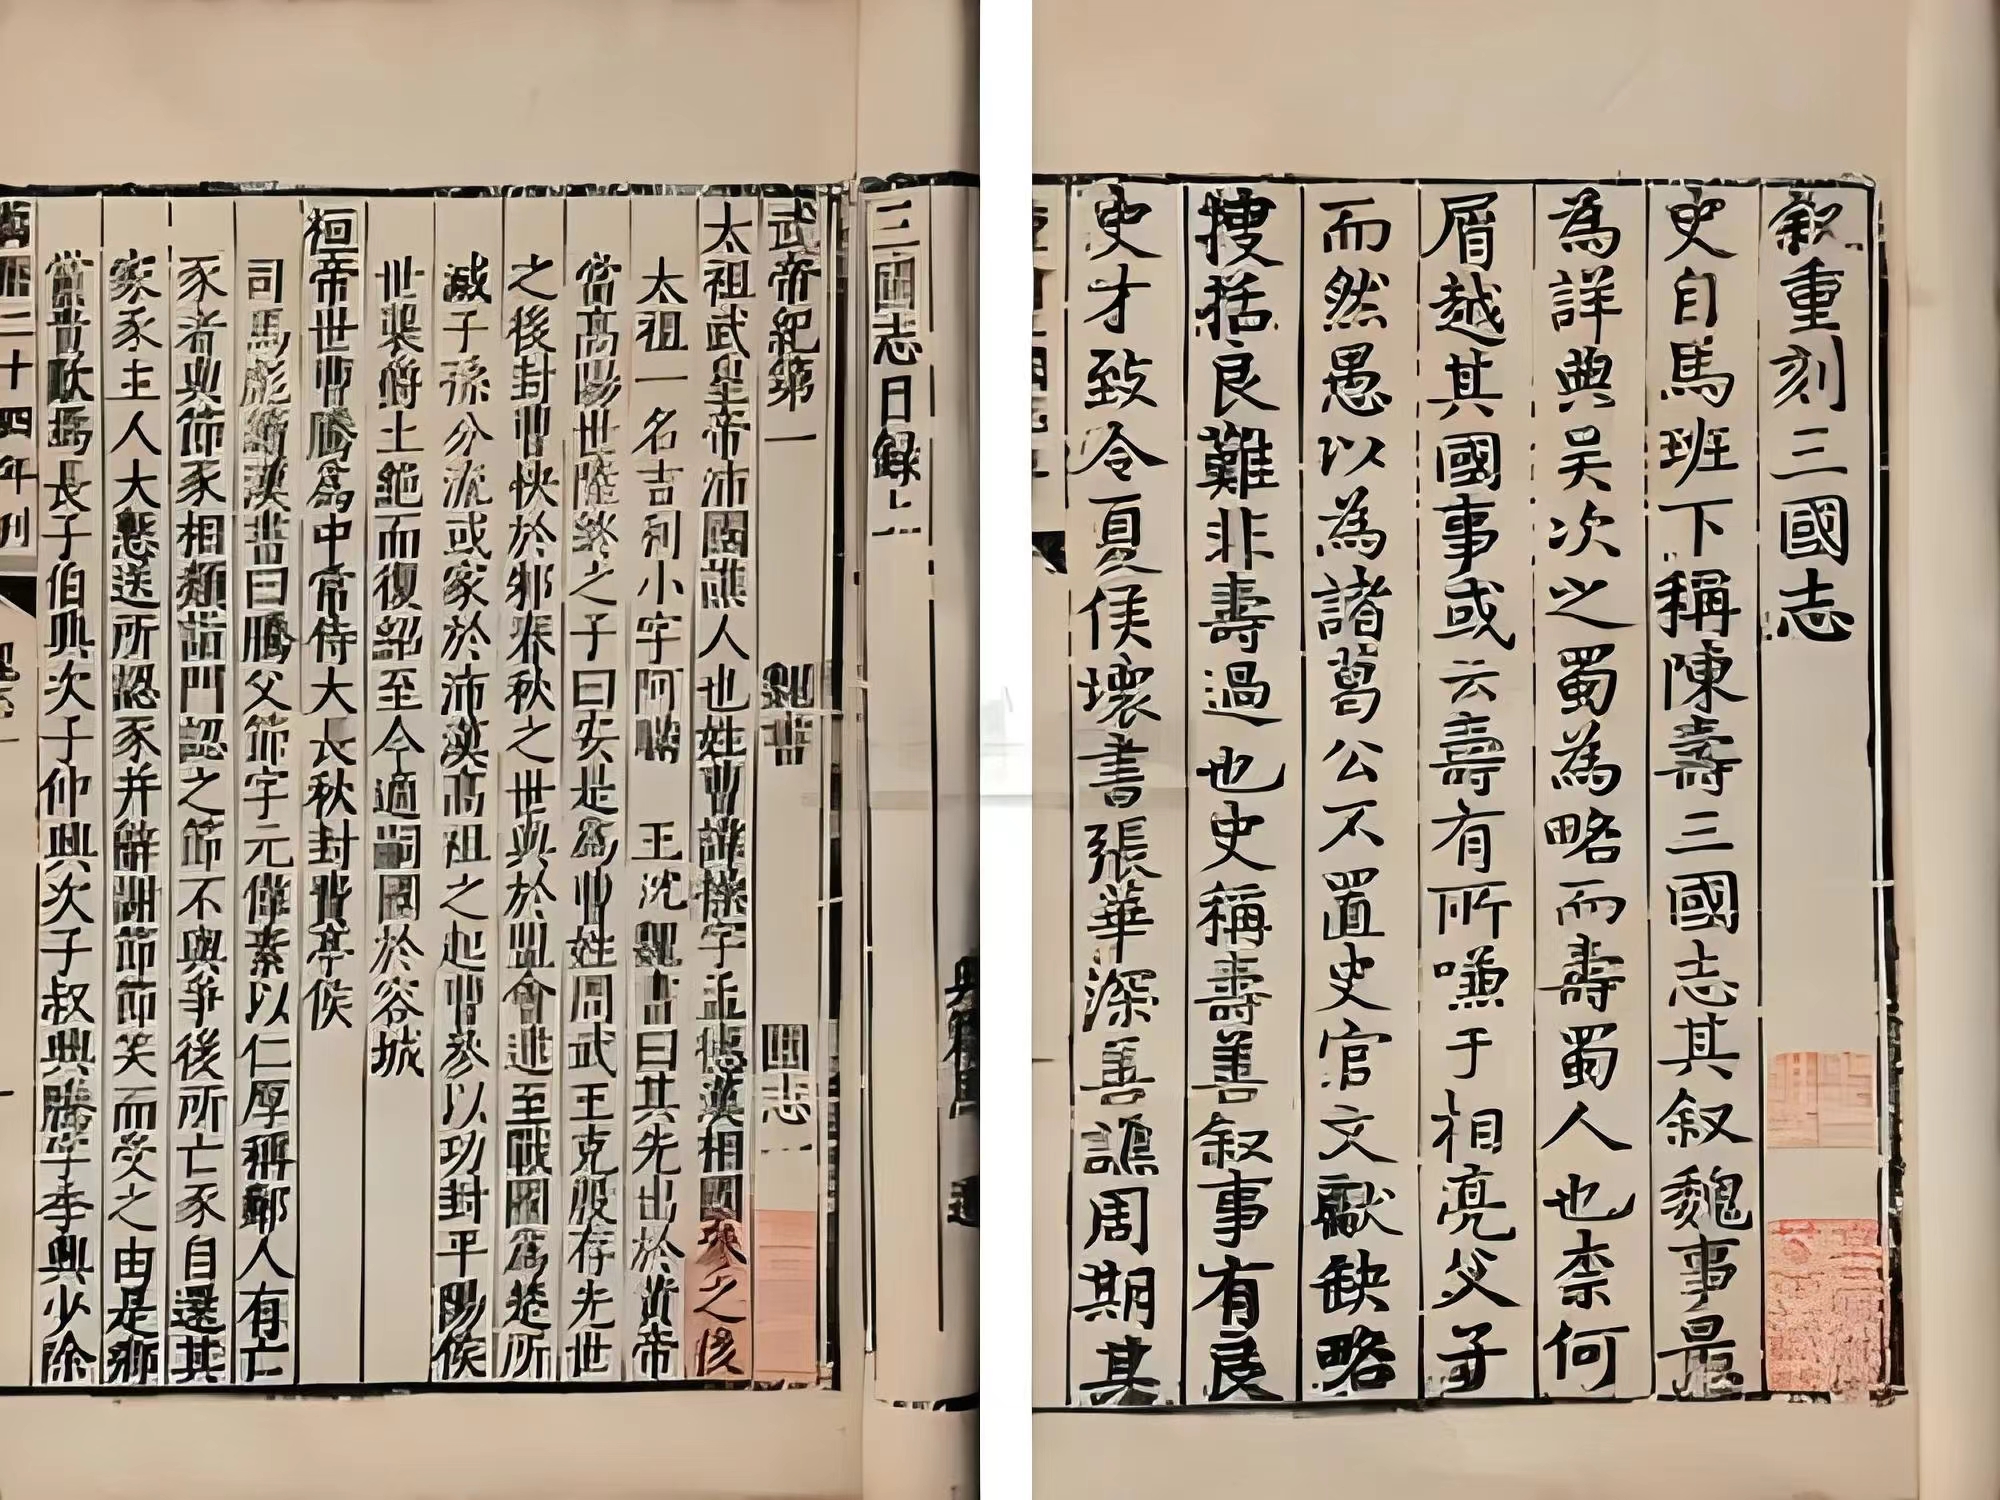 叙重刻三國志
史自馬班下稱陳壽三國志其叙魏事最
為詳典吴次之蜀為略而壽蜀人也柰何
屑越其國事或云壽有所嗛于相亮父子
而然愚以為諸葛公不置史官文獻缺略
搜括良難非壽過也史稱壽善叙事有良
史才致令夏侯壞書張華深善譙周期其
三國志目錄上
武帝紀第一 魏書 國志一
太祖武皇帝沛國譙人也姓曹諱操字孟德漢相國參之後
太祖一名吉利小字阿瞞 王沈魏書曰其先出於黃帝
當高陽世陸終之子曰安是爲曹姓周武王克殷存先世
之後封曹俠於邾春秋之世與於盟會逮至戰國爲楚所
滅子孫分流或家於沛漢高祖之起曹參以功封平陽侯
世襲爵土絶而復紹至今適嗣國於容城
桓帝世曹騰爲中常侍大長秋封費亭侯
司馬彪續漢書曰騰父節字元偉素以仁厚稱鄰人有亡
豕者與節豕相類詣門認之節不與爭後所亡豕自還其
家豕主人大慙送所認豕并辭謝節節笑而受之由是鄉
黨貴歎焉長子伯興次子仲興次子叔興騰字季興少除
二十四年刊